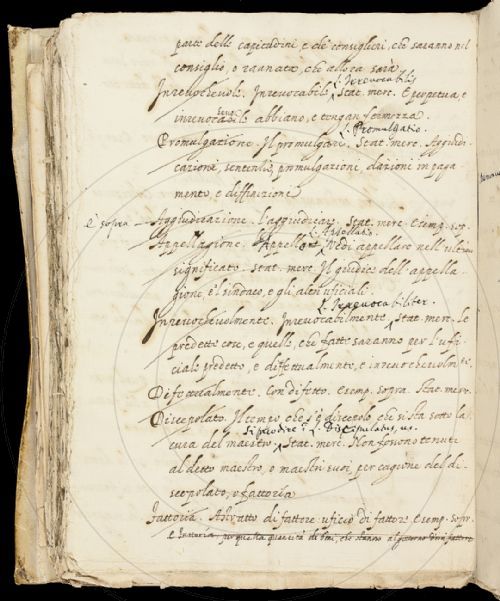 parte delle capitudini, e de' consiglieri, che saranno nel
consiglio, o raunata, che allora sarà
L. Irrevocabilis
Inrevochevole. Inrevocabile. Stat. merc. E perpetua, e
inrevocabile abbiano, e tengan fermezza
L. Promulgatio.
Promulgazione. Il promulgare. Stat. merc. Aggiudi-
cazioni, sentenzie, promulgazioni, dazioni in paga-
mento, e diffinizioni
È sopra Aggiudicazione. L'aggiudicare. Stat. merc. esemp. sop.
L. Appellatio.
Appellagione. Vedi appellare nell'ulti
significato. Stat. merc. Il giudice dell'appella-
gione, e 'l sindaco, e gli altri uficiali.
L. Irrevocabiliter.
Inrevochevolmente. Inrevocabilmente. Stat. merc. Le
predette cose, e quelle, che fatte saranno per l'ufi-
ciale predetto, e difettualmente, e inrevochevolmte.
Difettualmente. Con difetto. Esemp. sopra. Stat. merc.
Discepolato. Il tempo che s'è discepolo, che si sta sotto la
L. Discipulatus, us.
cura del maestro. Stat. merc. Non fossono tenuti
al detto maestro, o maestri suoi, per cagione del di-
scepolato, o fattoria
Fattoria. Astratto di fattore: uficio di fattore. Esemp. sopr.
E fattoria per quella quantità di